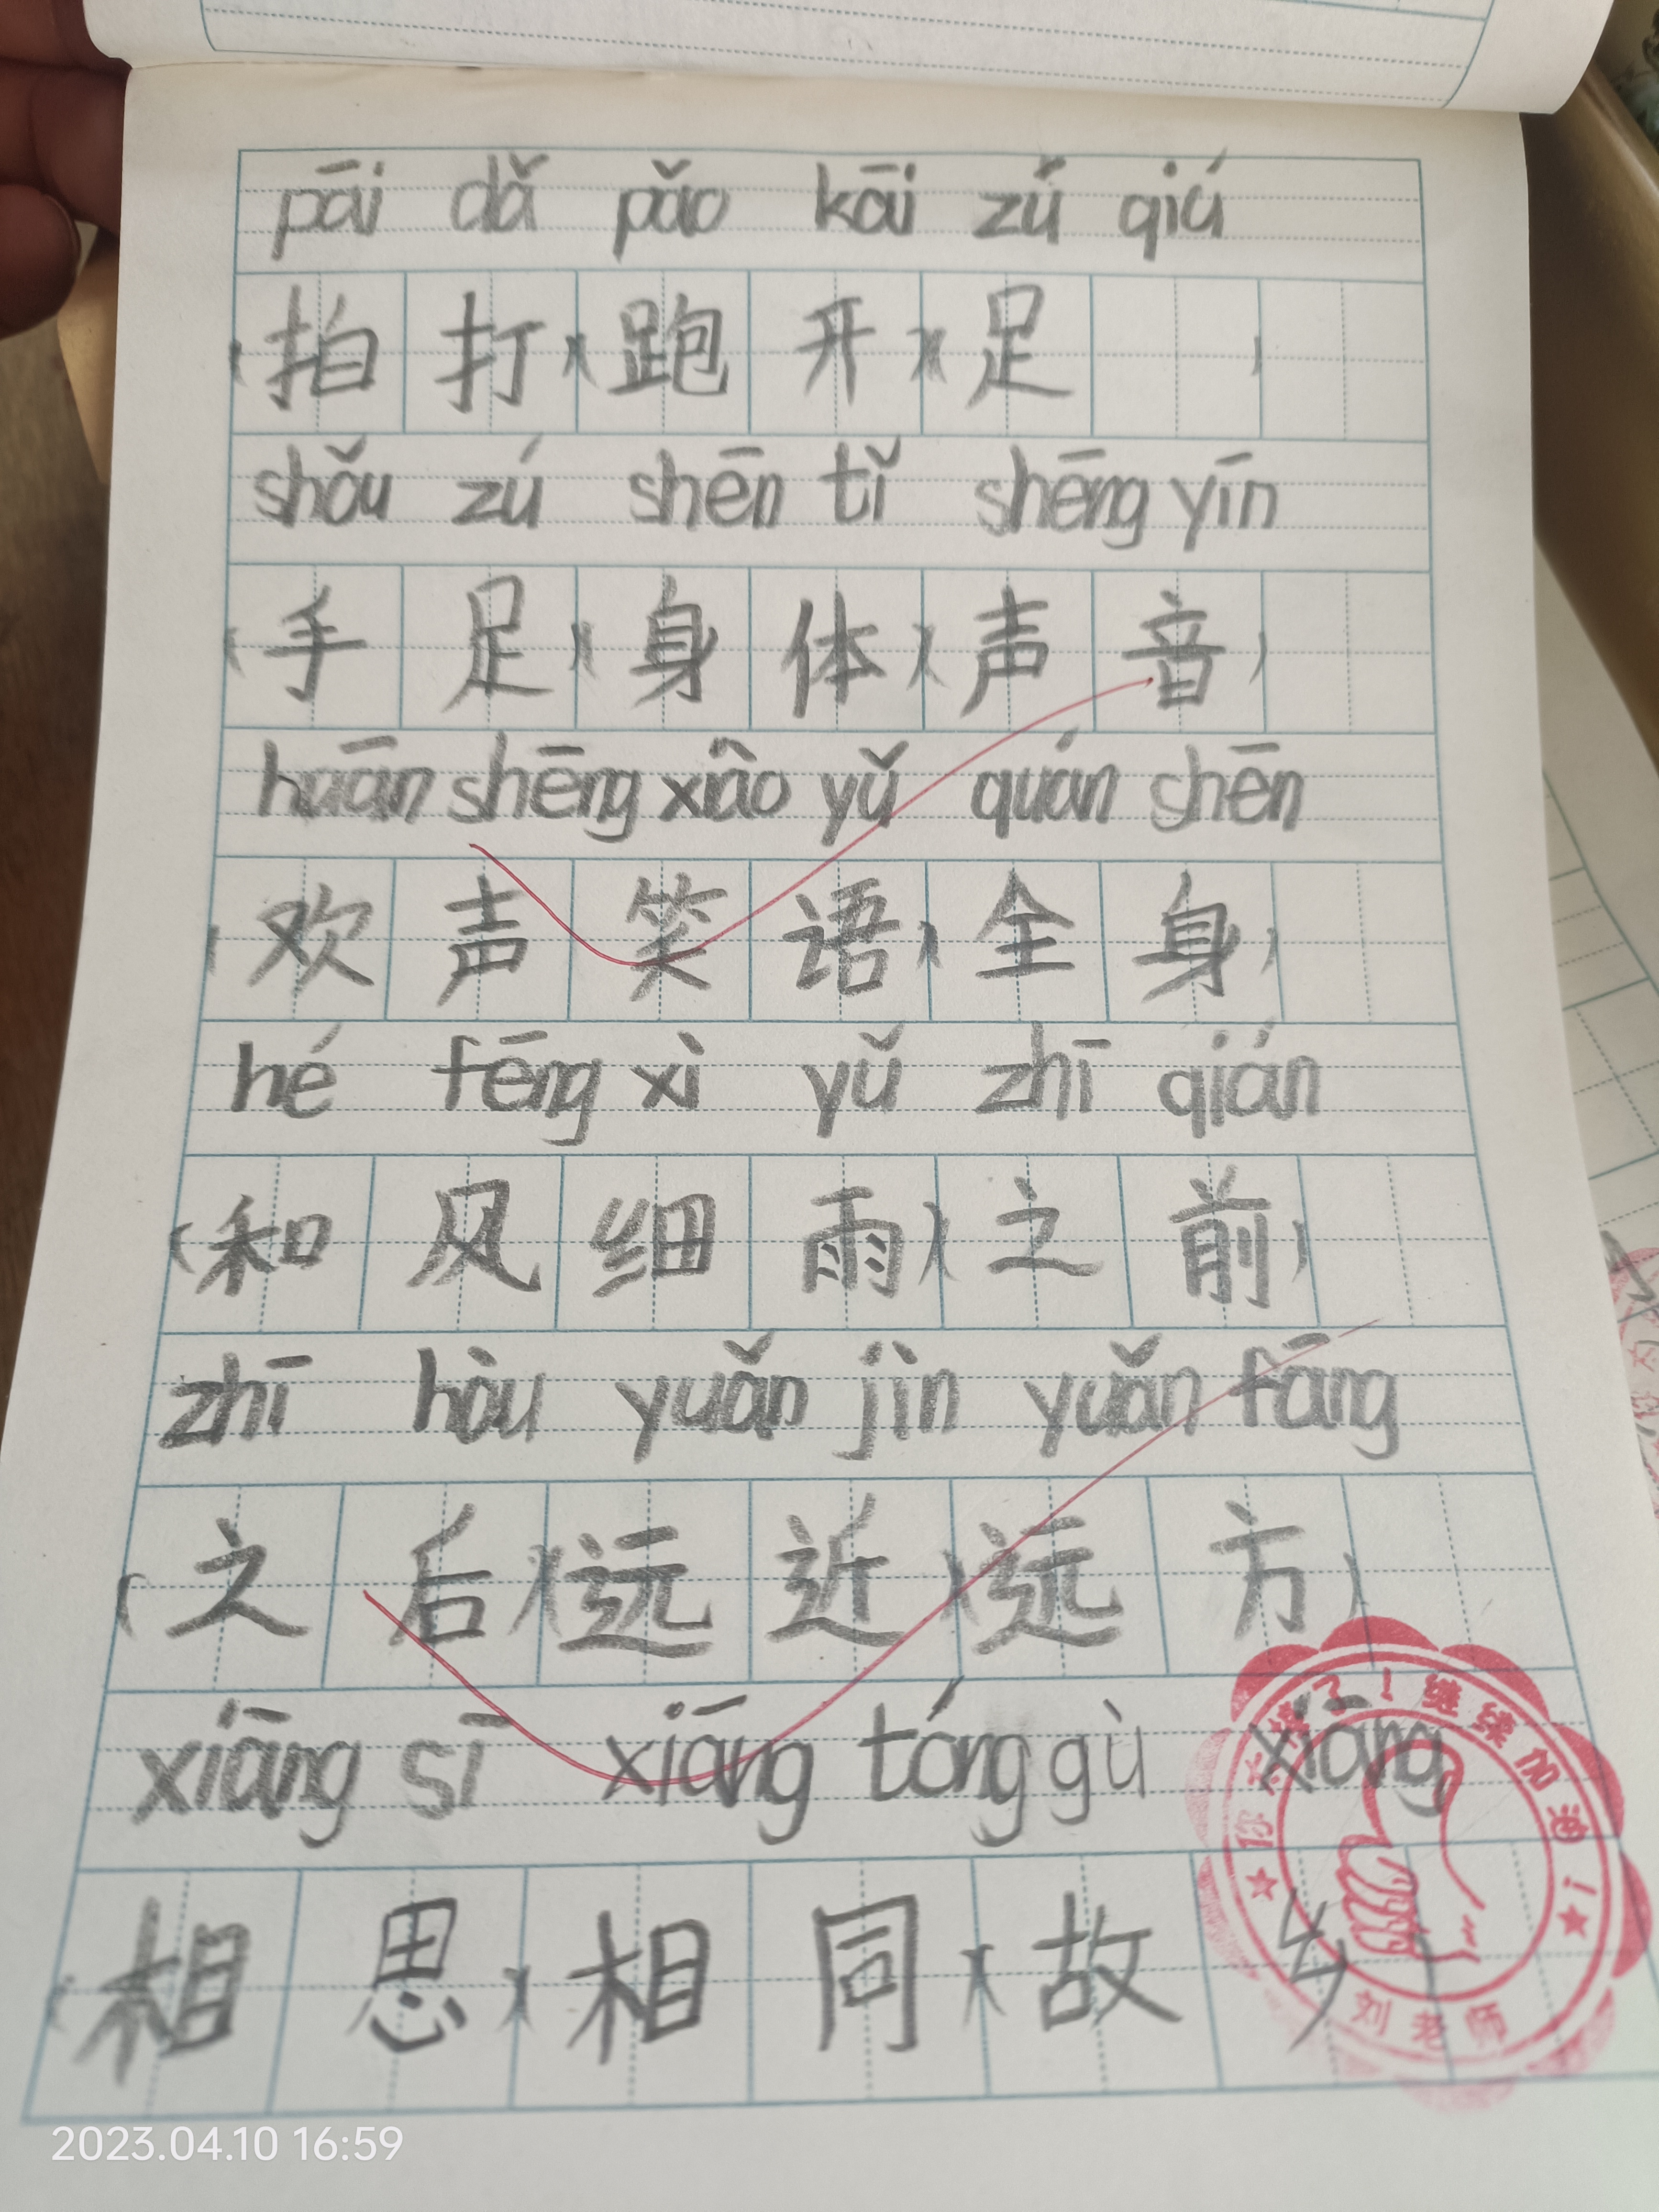 pāi dǎ pǎo kāi zú qiú
(拍打)(跑开)(足 )
shǒu zú shēn tǐ shēng yīn
(手足)(身体)(声音)
huān shēng xiào yǔ quán shēn
(欢声笑语)(全身)
hé fēng xì yǔ zhī qián
(和风细雨)(之前)
zhī hòu yuǎn jìn yuǎn fāng
(之后)(远近)(远方)
xiāng sī xiāng tóng gù xiāng
(相思)(相同)(故乡)
你太棒了!继续加油!
刘老师
2023.04.10 16:59